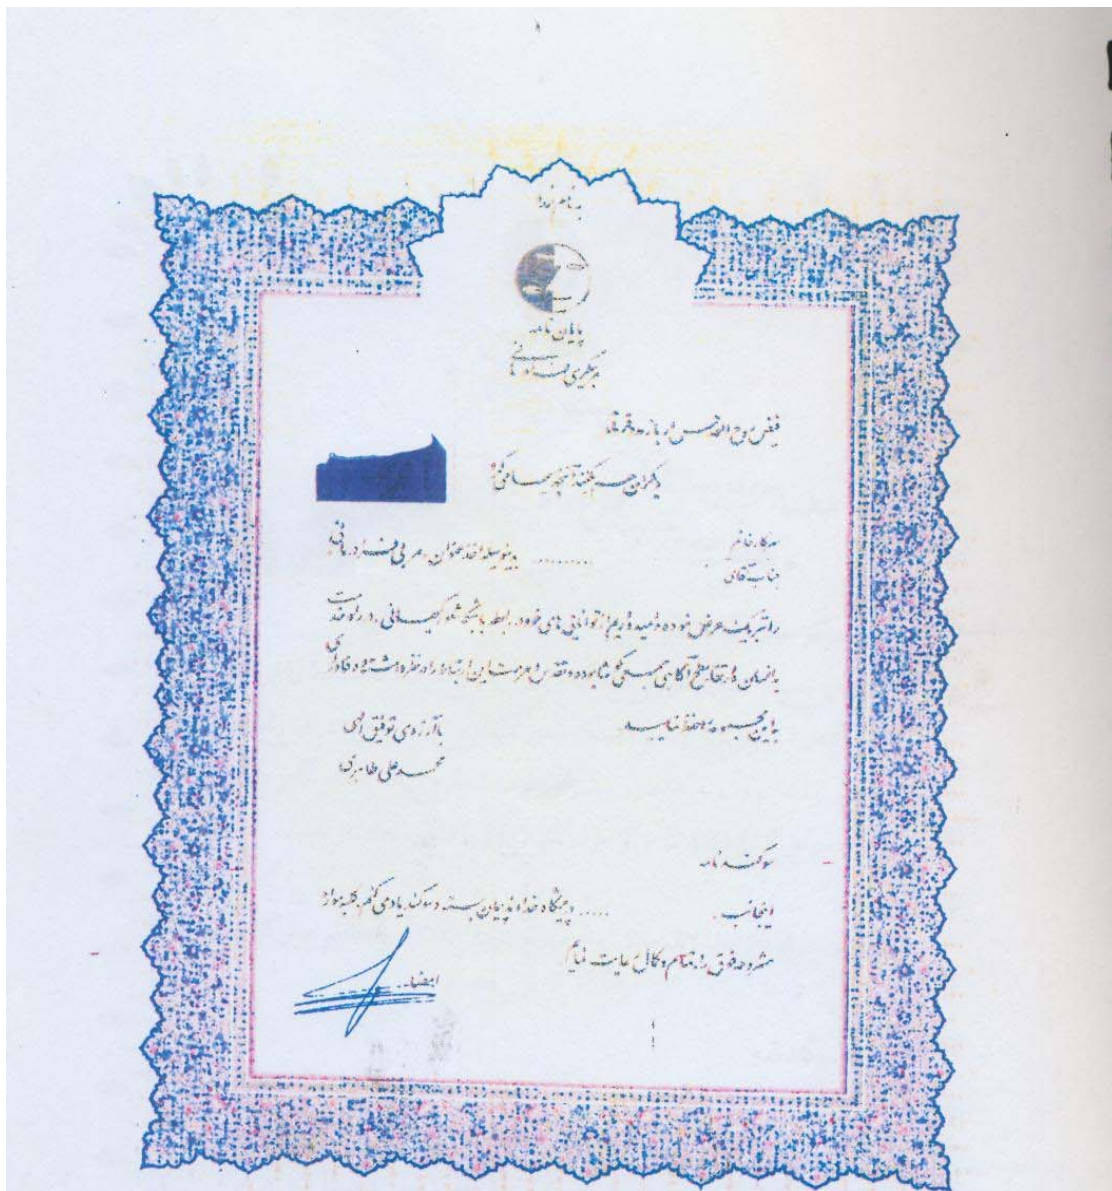 به نام خدا
پایان نامه
مربیگری فرادرمانی
فیض روح القدس ار باز مدد فرماید
دیگران هم بکنند آنچه مسیحا می‌کرد
سرکار خانم
جناب آقای .......... بدینوسیله اخذ عنوان مربی فرادرمانی
را تبریک عرض نموده و امیدواریم از توانایی های خود در رابطه با شبکه شعور کیهانی، در راه خدمت
به انسان و ارتقاء سطح آگاهی همگی کوشا بوده و تقدس و حرمت این ارتباط را در نظر داشته و وفاداری
به این مجموعه را حفظ نمایید.
با آرزوی توفیق الهی
محمد علی طاهری
سوگند نامه
اینجانب ..... در پیشگاه خداوند پیمان بسته و سوگند یاد می کنم کلیه موارد
مشروحه فوق را تمام و کمال رعایت نمایم.
امضاء